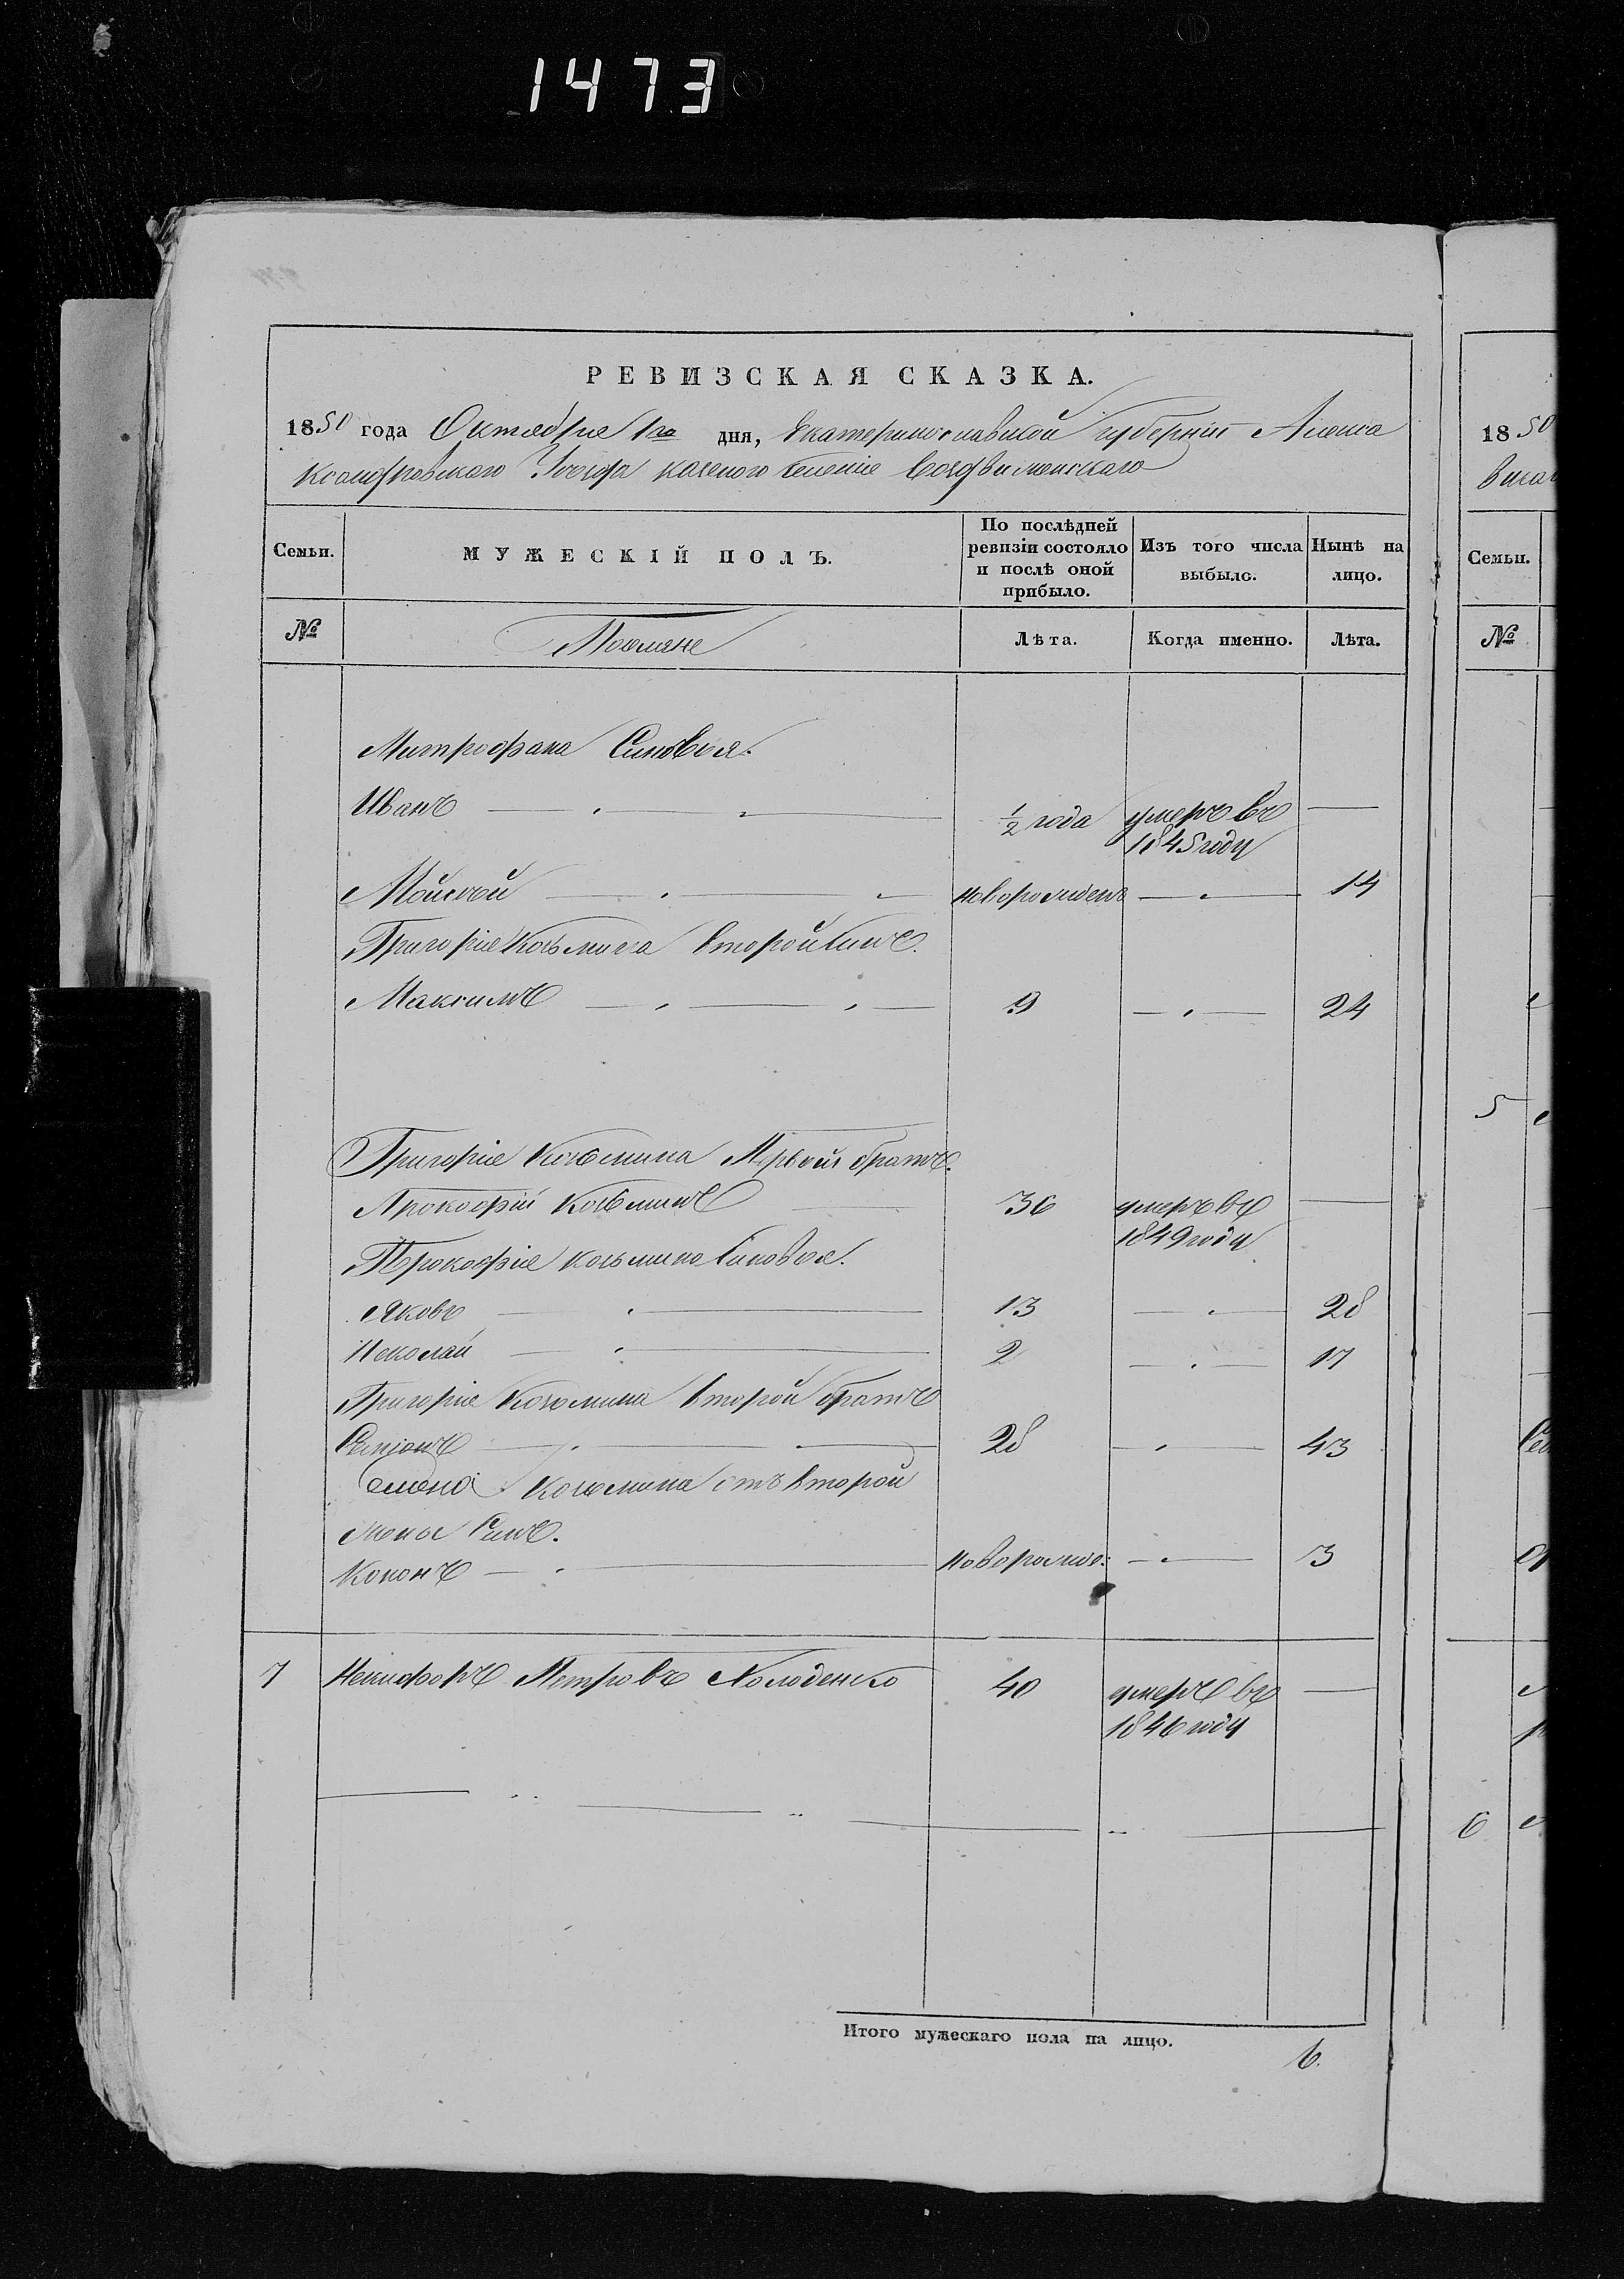 1473
РЕВИЗСКАЯ СКАЗКА.
1850 года Октября 1го дня, Екатеринославской губернии Алекса
ксандровского Уезда казеного селения Воздвиженского
Семьи. МУЖЕСКІЙ ПОЛЪ. По послѣдней ревизіи состояло и послѣ оной прибыло. Изъ того числа выбыло. Нынѣ на лицо.
№ Поселяне Лѣта. Когда именно. Лѣта.
Митрофана Синовья.
Иванъ ½ года умеръ въ 1845 году —
Мойсей новорожденъ — 14
Григорія Козьмина второй Синъ.
Максимъ 9 — 24
Григорія Козьмина Первой братъ.
Прокофій Козьминъ 36 умеръ въ 1849 году —
Прокофія Козьмина Синовья.
Яковъ 13 — 28
Неколай 2 — 17
Григорія Козьмина второй братъ
Семіонъ 28 — 43
Семена Козьмина отъ второй
жены Синъ.
Кононъ новорожде: — 3
7 Некифоръ Петровъ Холоденко 40 умеръ въ 1846 году —
Итого мужескаго пола на лицо. 6.
1850
Семьи.
№
5
6